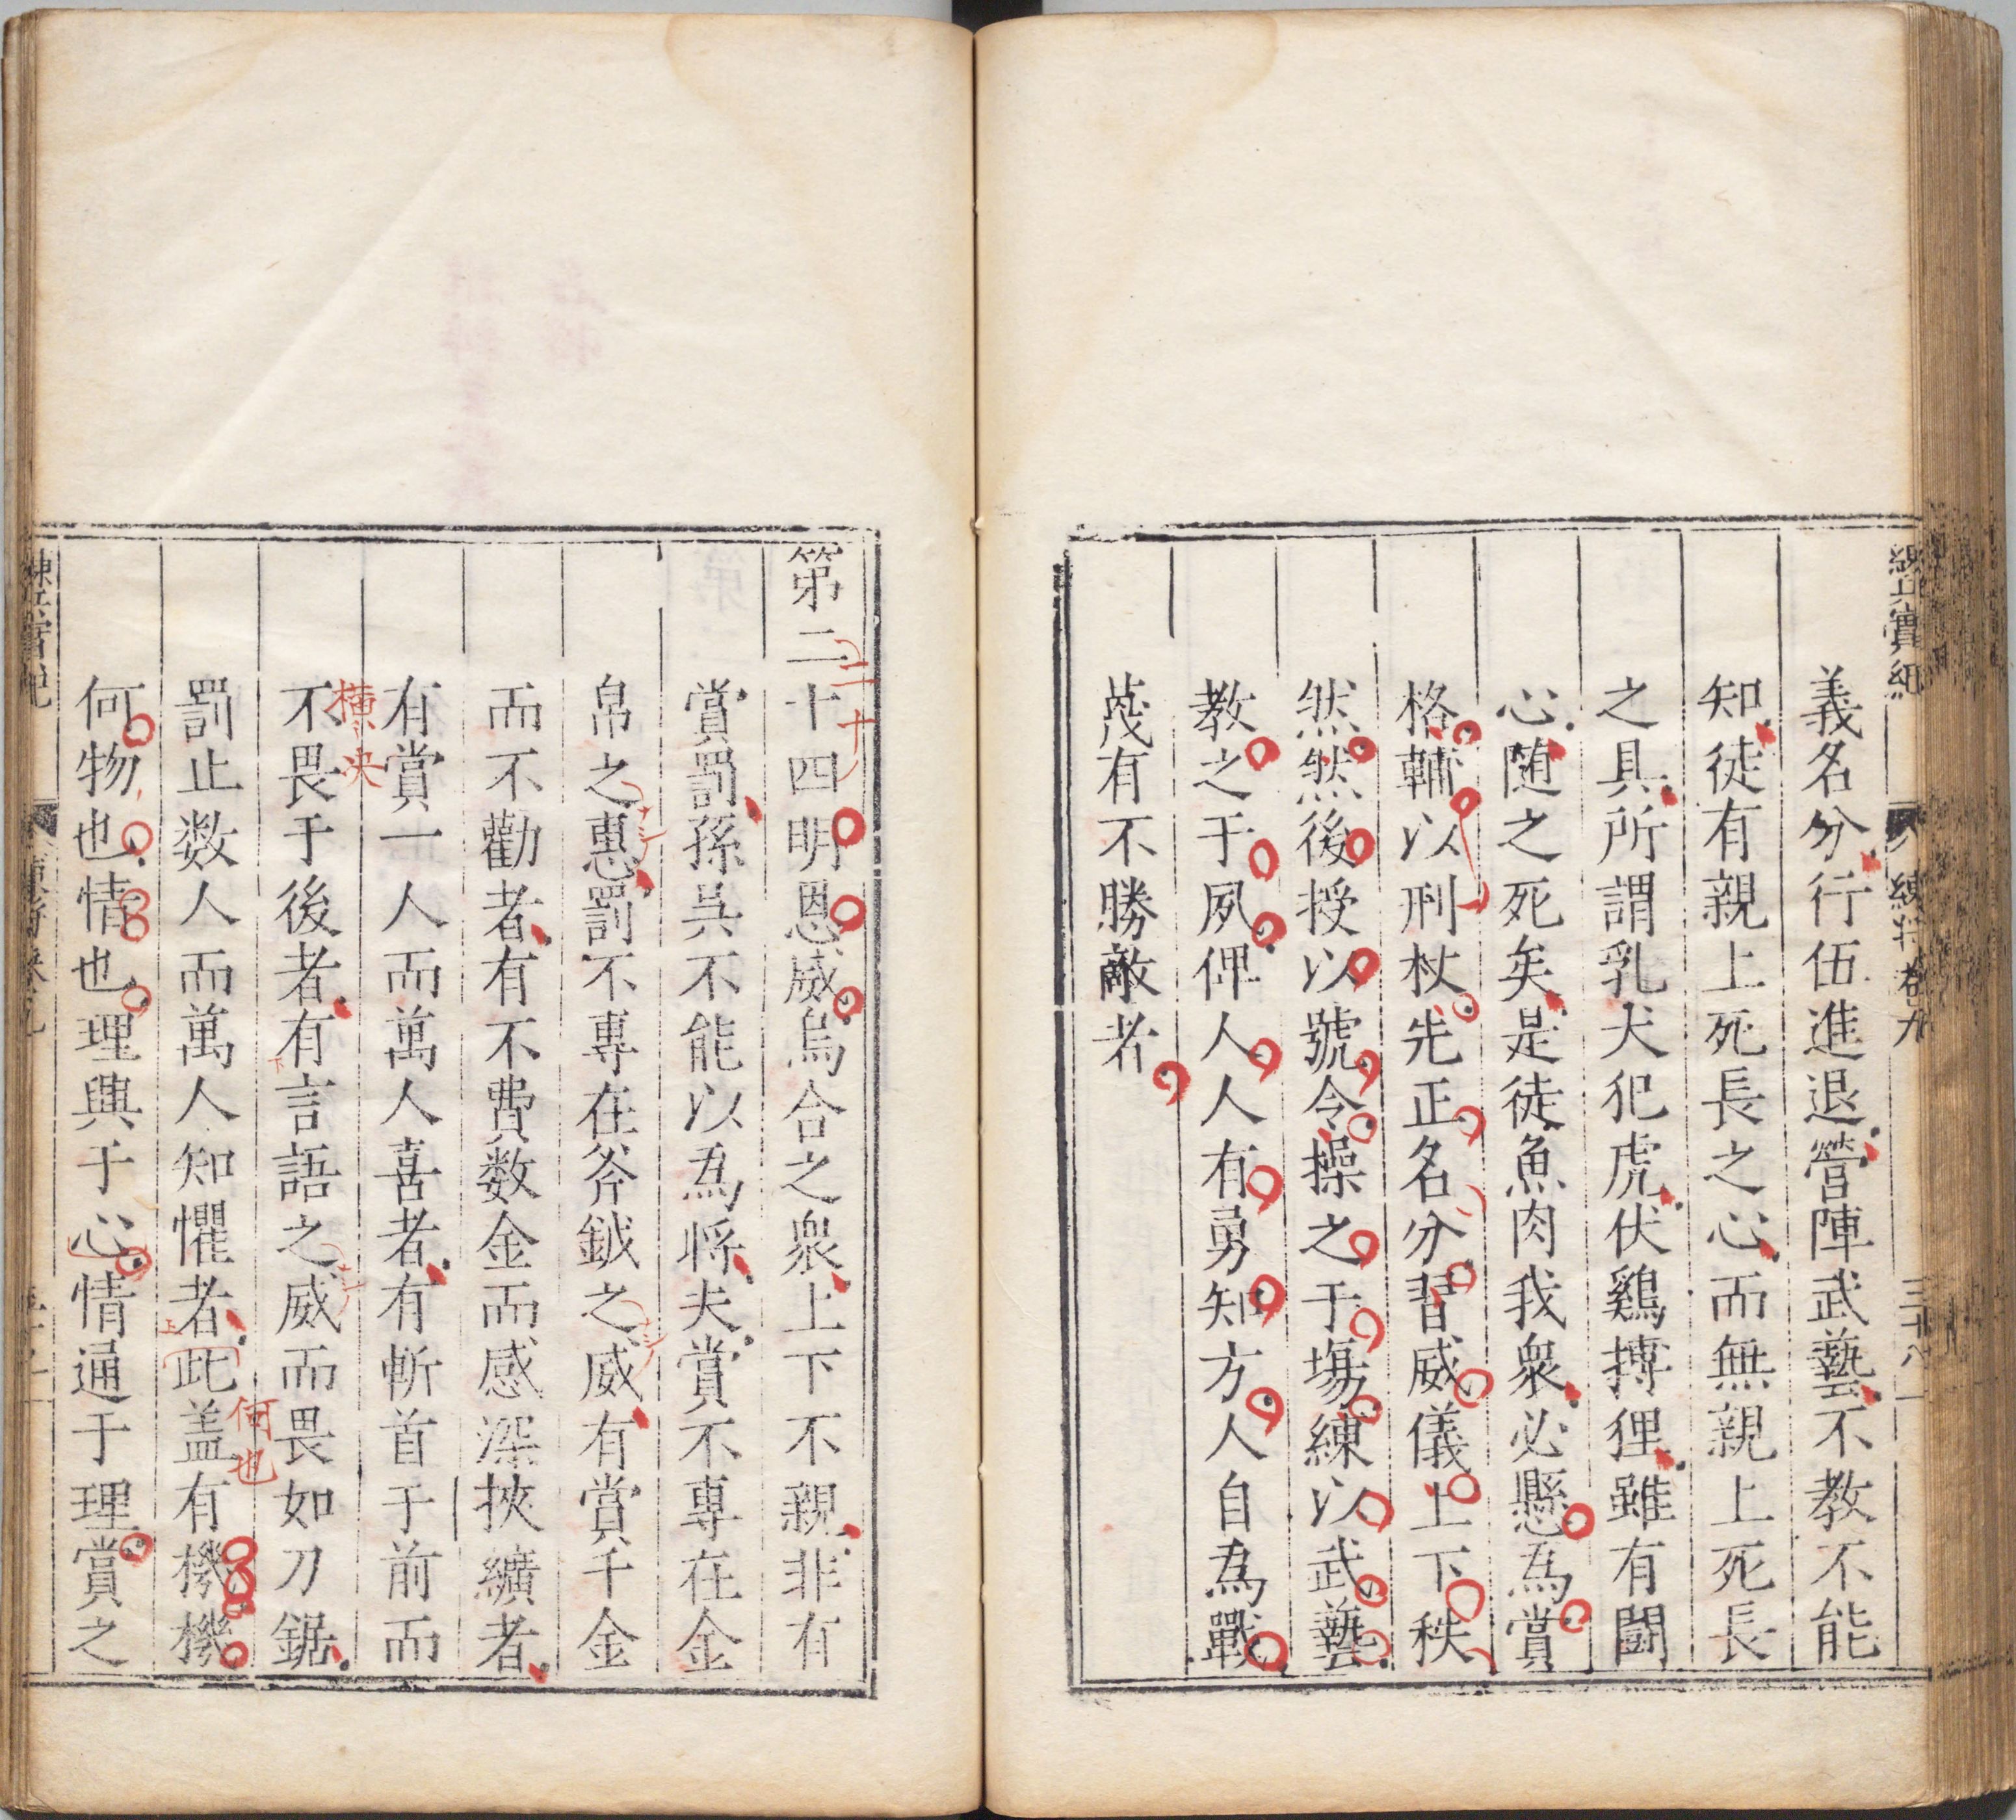 義名分行伍進退營陣武藝不教不能
知徒有親上死長之心而無親上死長
之具所謂乳犬犯虎伏鷄搏狸雖有鬪
心随之死矣是徒魚肉我衆必懸為賞
格輔以刑杖先正名分習威儀上下秩
然然後授以號令操之于場練以武藝
教之于夙俾人人有勇知方人自為戰
蔑有不勝敵者
第二十四明恩威烏合之衆上下不親非有
二十
賞罰孫吳不能以為將夫賞不專在金
帛之惠罰不專在斧鉞之威有賞千金
而不勸者有不費数金而感深挾纊者
有賞一人而萬人喜者有斬首于前而
不畏于後者有言語之威而畏如刀鋸
罰止数人而萬人知懼者此盖有機機
何也
何物也情也理興于心情通于理賞之